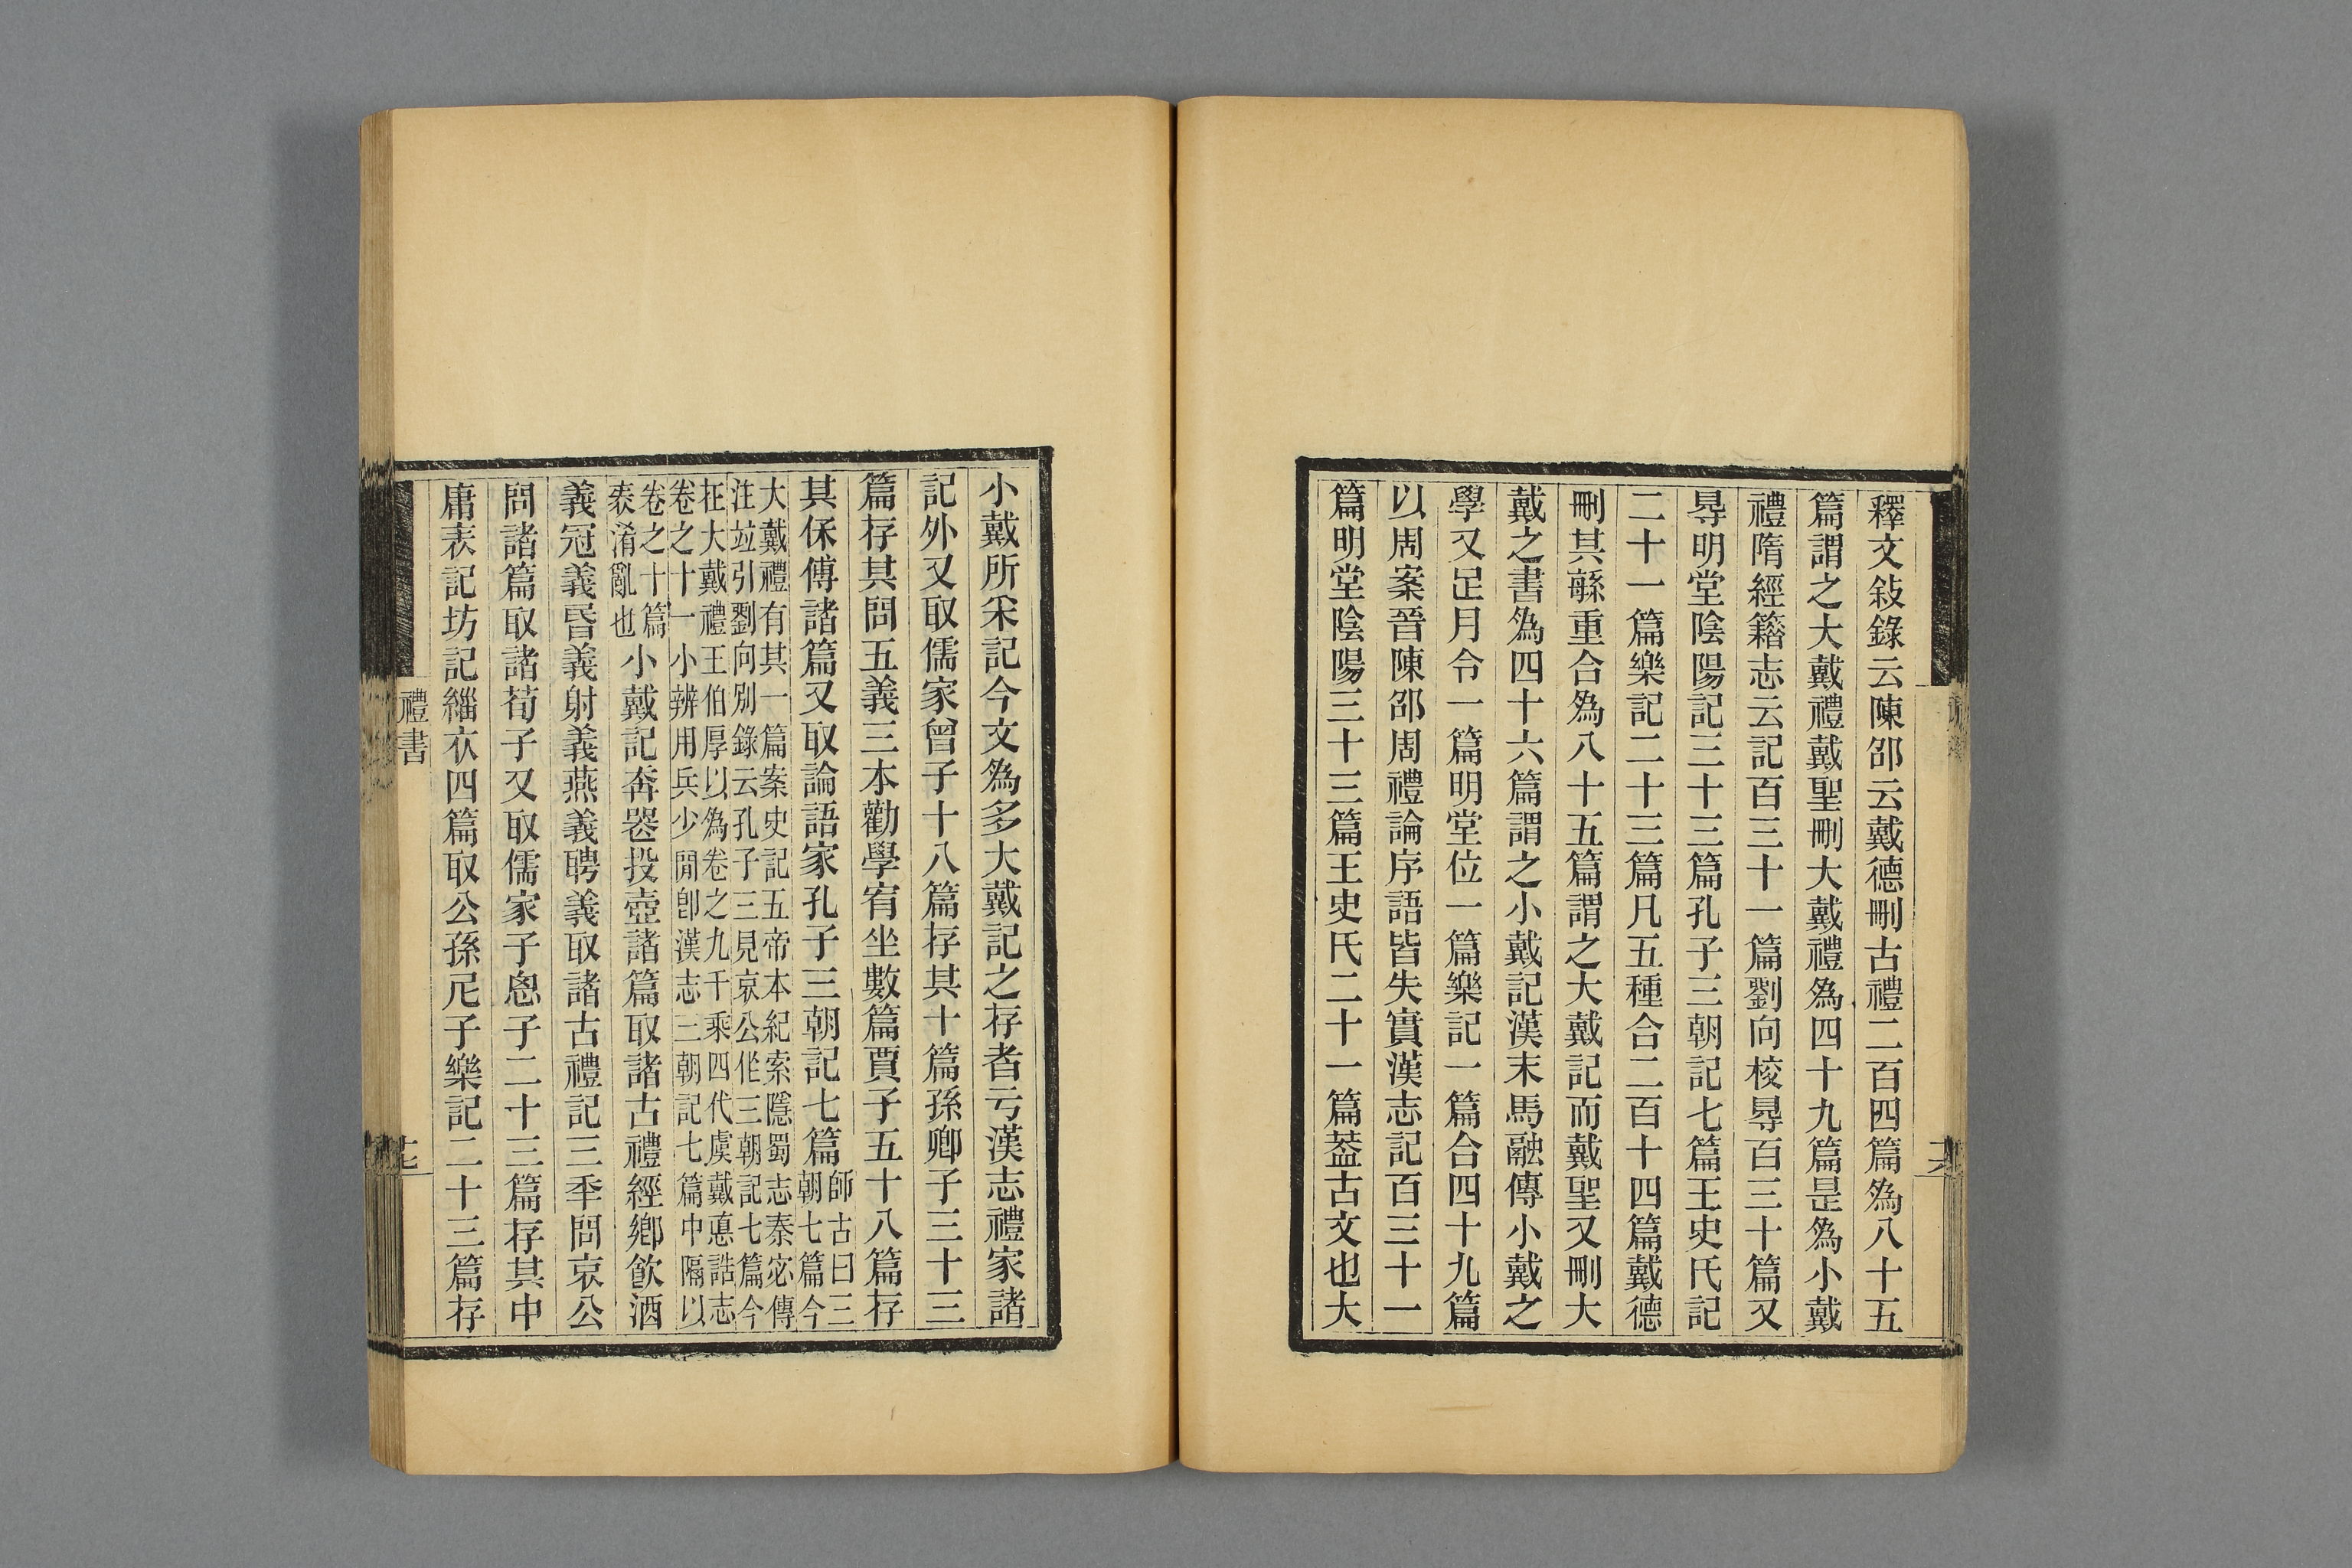 釋文敍錄云陳邵云戴德刪古禮二百四篇爲八十五
篇謂之大戴禮戴聖刪大戴禮爲四十九篇是爲小戴
禮隋經籍志云記百三十一篇劉向校㝵百三十篇又
㝵明堂陰陽記三十三篇孔子三朝記七篇王史氏記
二十一篇樂記二十三篇凡五種合二百十四篇戴德
刪其緐重合爲八十五篇謂之大戴記而戴聖又刪大
戴之書爲四十六篇謂之小戴記漢末馬融傳小戴之
學又足月令一篇明堂位一篇樂記一篇合四十九篇
以周案晉陳邵周禮論序語皆失實漢志記百三十一
篇明堂陰陽三十三篇王史氏二十一篇葢古文也大
小戴所采記今文爲多大戴記之存者亏漢志禮家諸
記外又取儒家曾子十八篇存其十篇孫卿子三十三
篇存其問五義三本勸學宥坐數篇賈子五十八篇存
其保傅諸篇又取論語家孔子三朝記七篇師古曰三
朝七篇今
大戴禮有其一篇案史記五帝本紀索隱蜀志秦宓傳
注竝引劉向別錄云孔子三見哀公作三朝記七篇今
在大戴禮王伯厚以爲卷之九千乘四代虞戴悳誥志
卷之十一小辨用兵少閒卽漢志三朝記七篇中隔以
卷之十篇
袠淆亂也小戴記奔喪投壺諸篇取諸古禮經鄉飮酒
義冠義昏義射義燕義聘義取諸古禮記三年問哀公
問諸篇取諸荀子又取儒家子思子二十三篇存其中
庸表記坊記緇衣四篇取公孫尼子樂記二十三篇存
禮書
十七